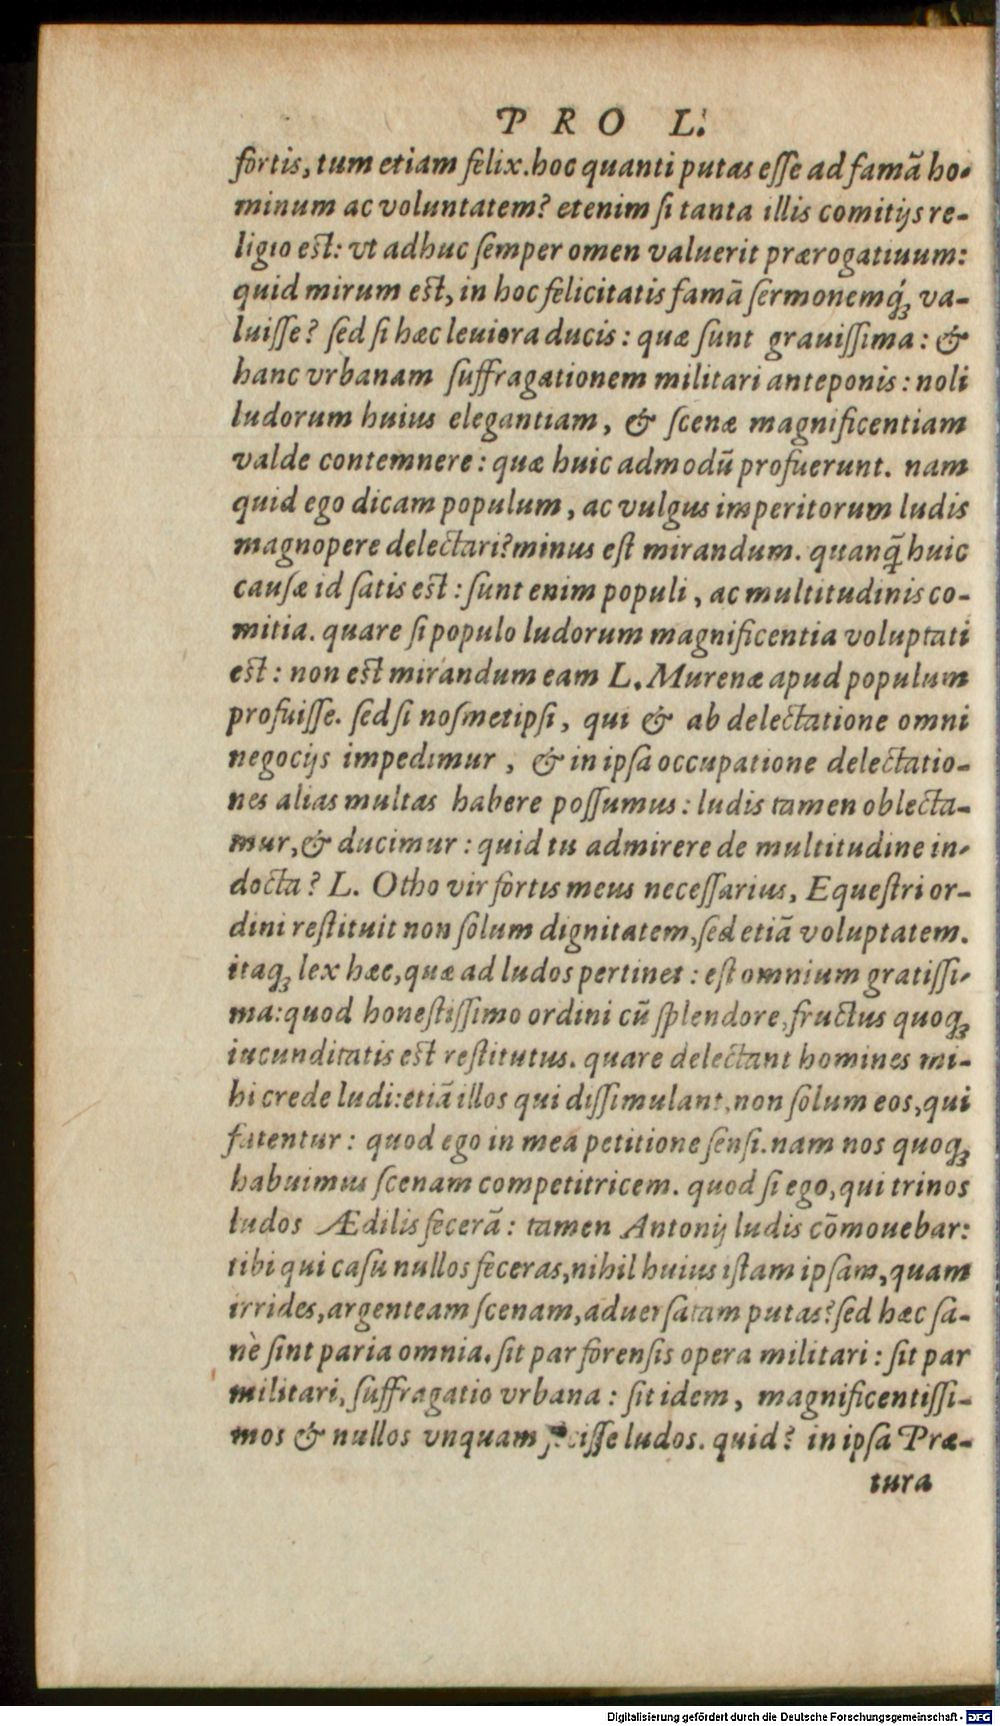 PRO L.
fortis, tum etiam felix. hoc quanti putas esse ad famā ho-
minum ac voluntatem? etenim si tanta illis comitijs re-
ligio est: vt adhuc semper omen valuerit prærogatiuum:
quid mirum est, in hoc felicitatis famā sermonemq́ꝫ va-
luisse? sed si hæc leuiora ducis: quæ sunt grauissima: &
hanc vrbanam suffragationem militari anteponis: noli
ludorum huius elegantiam, & scenæ magnificentiam
valde contemnere: quæ huic admodū profuerunt. nam
quid ego dicam populum, ac vulgus imperitorum ludis
magnopere delectari? minus est mirandum. quanq̃ huic
causæ id satis est: sunt enim populi, ac multitudinis co-
mitia. quare si populo ludorum magnificentia voluptati
est: non est mirandum eam L. Murenæ apud populum
profuisse. sed si nosmetipsi, qui & ab delectatione omni
negocijs impedimur, & in ipsa occupatione delectatio-
nes alias multas habere possumus: ludis tamen oblecta-
mur, & ducimur: quid tu admirere de multitudine in-
docta? L. Otho vir fortis meus necessarius, Equestri or-
dini restituit non solum dignitatem, sed etiā voluptatem.
itaqꝫ lex hæc, quæ ad ludos pertinet: est omnium gratissi-
ma: quod honestissimo ordini cū splendore, fructus quoqꝫ
iucunditatis est restitutus. quare delectant homines mi-
hi crede ludi: etiā illos qui dissimulant, non solum eos, qui
fatentur: quod ego in mea petitione sensi. nam nos quoqꝫ
habuimus scenam competitricem. quod si ego, qui trinos
ludos Ædilis fecerā: tamen Antonij ludis cōmouebar:
tibi qui casu nullos feceras, nihil huius istam ipsam, quam
irrides, argenteam scenam, aduersatam putas? sed hæc sa-
nè sint paria omnia. sit par forensis opera militari: sit par
militari, suffragatio vrbana: sit idem, magnificentissi-
mos & nullos vnquam fecisse ludos. quid? in ipsa Præ-
tura
Digitalisierung gefördert durch die Deutsche Forschungsgemeinschaft - DFG